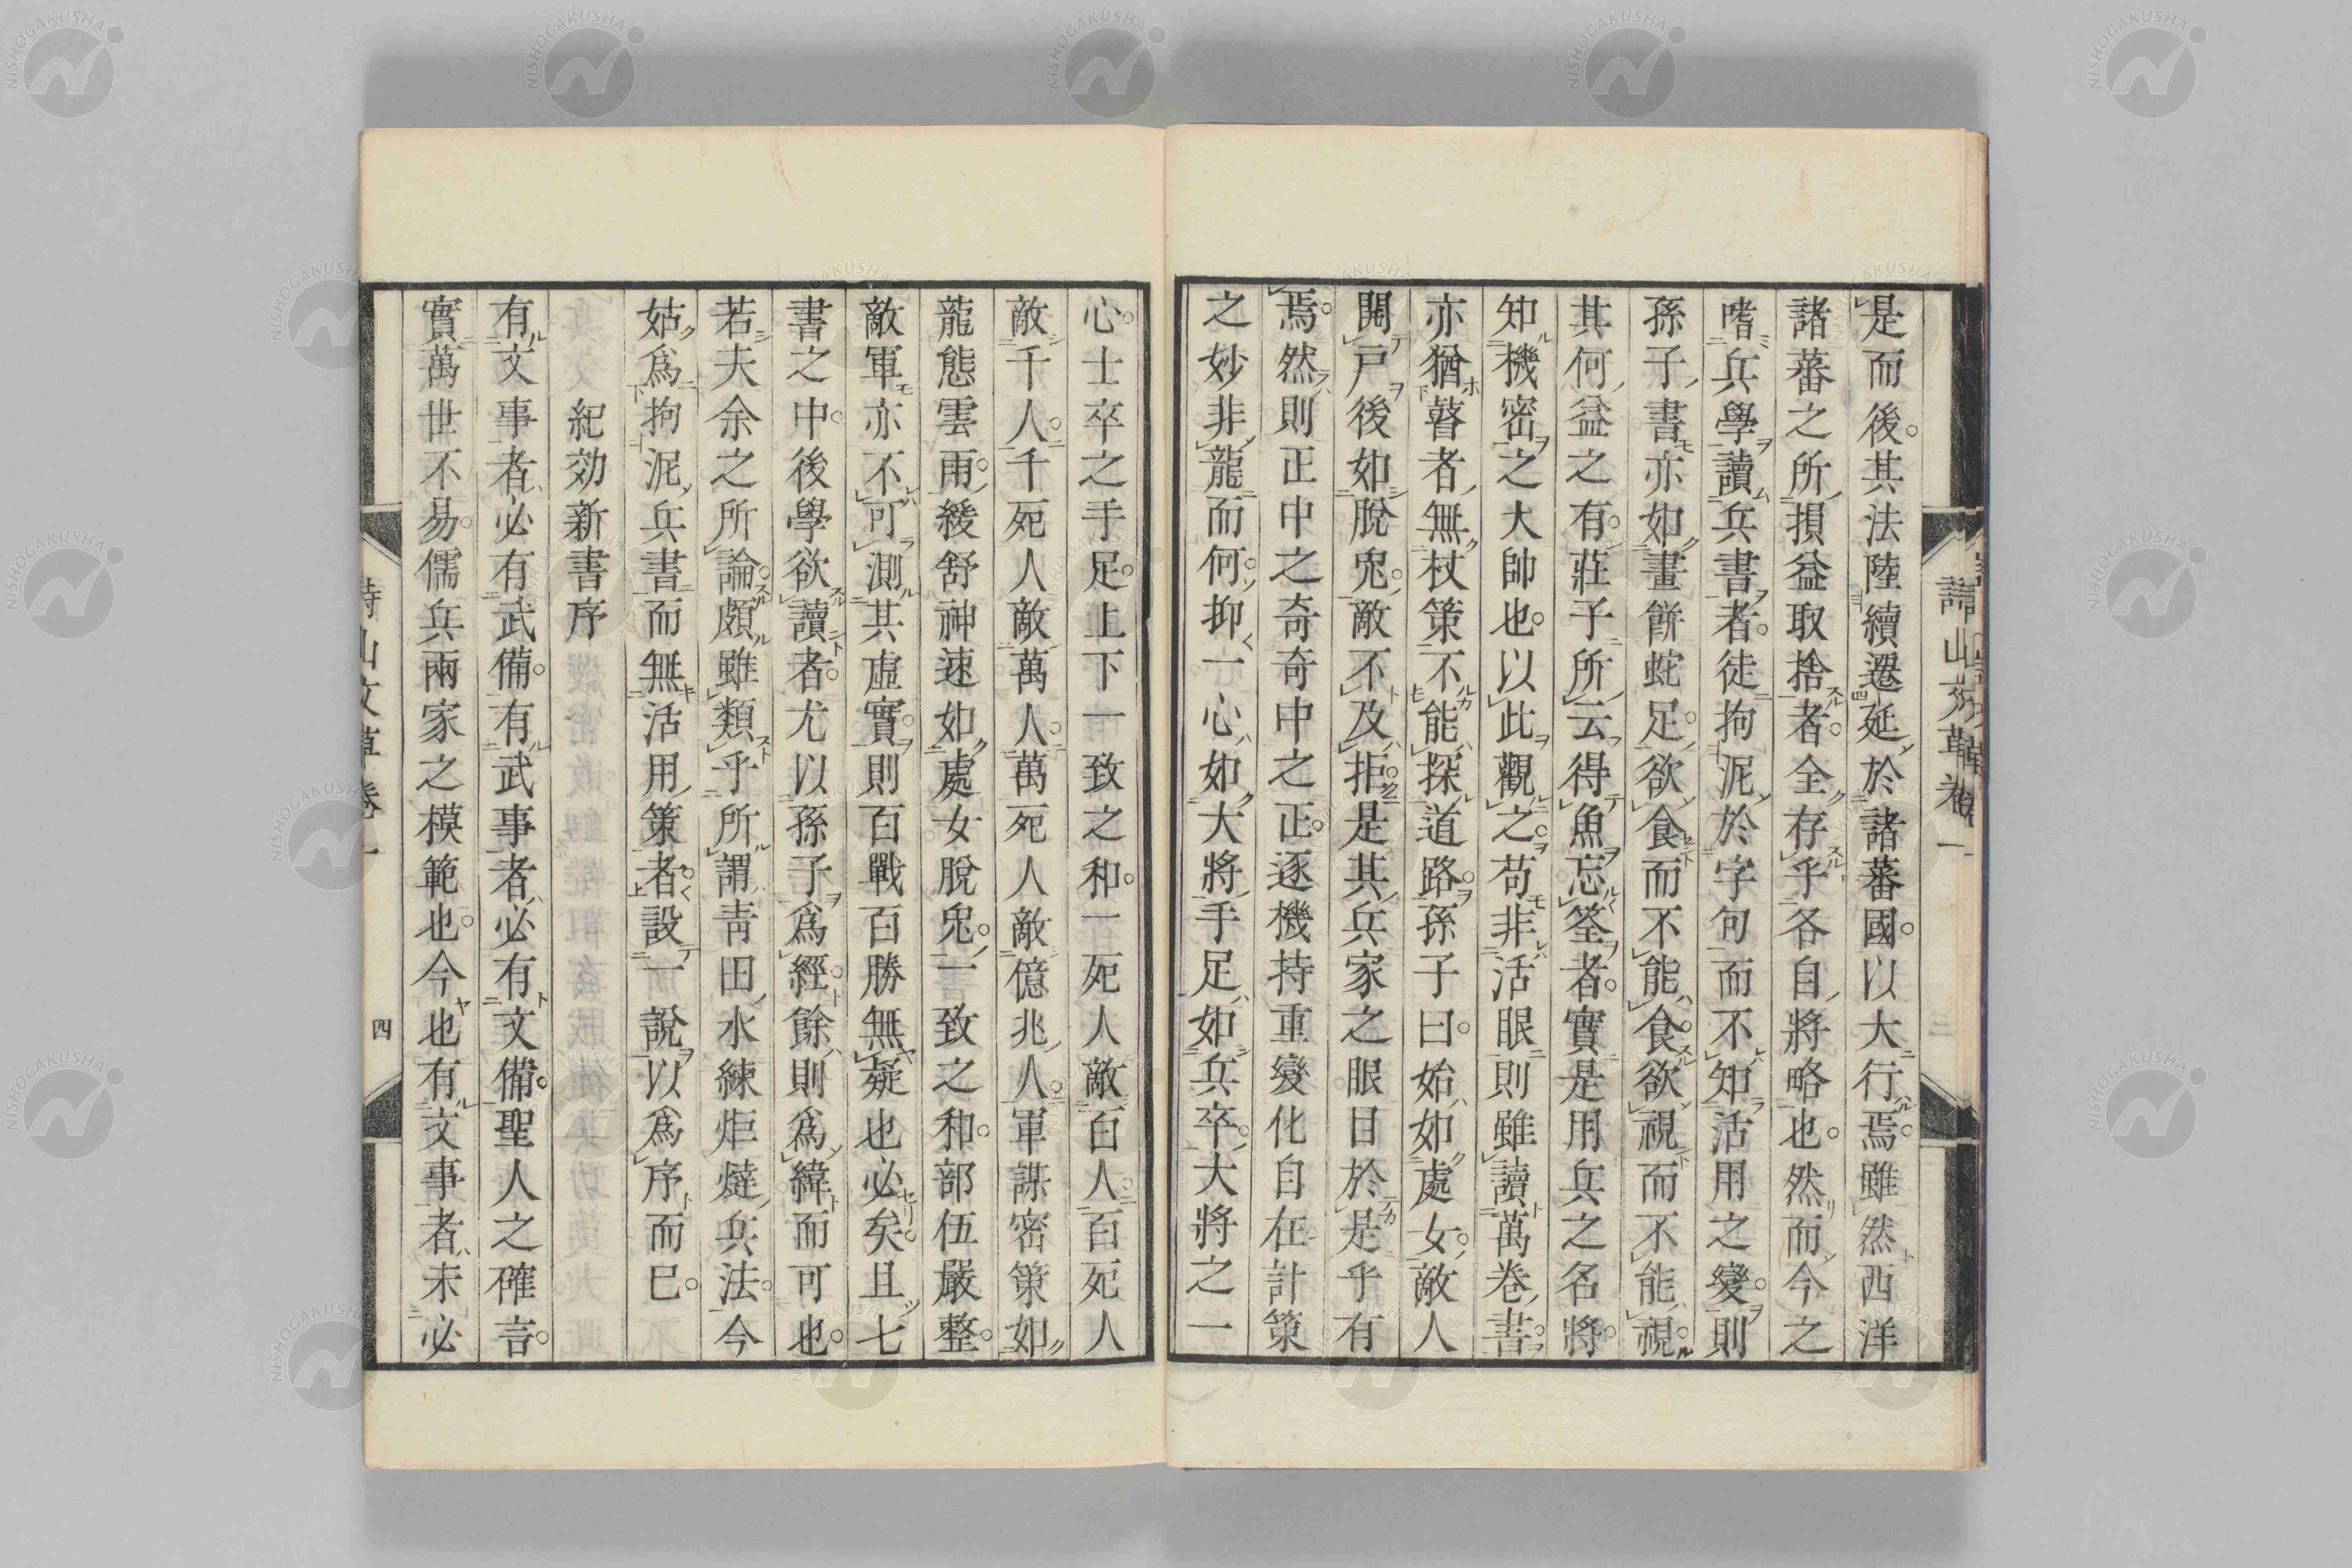 是而後。其法陸續遷延於諸蕃國。以大行焉。雖然西洋
諸蕃之所損益取捨者。全存乎各自將略也。然而今之
嗜兵學讀兵書者。徒拘泥於字句而不知活用之變。則
孫子書亦如畫餠蛇足。欲食而不能食。欲視而不能視。
其何益之有。莊子所云得魚忘筌者。實是用兵之名將。
知機密之大帥也。以此觀之。苟非活眼則雖讀萬卷書。
亦猶瞽者無杖策不能探道路。孫子曰。始如處女。敵人
開戸後如脫兎。敵不及拒。是其兵家之眼目於是乎有
焉。然則正中之奇奇中之正。逐機持重變化自在計策
之妙非龍而何。抑一心如大將手足如兵卒。大將之一
心。士卒之手足。上下一致之和。一死人敵百人。百死人
敵千人。千死人敵萬人。萬死人敵億兆人。軍謀密策如
龍態雲雨。綾舒神速如處女脫兎。一致之和。部伍嚴整。
敵軍亦不可測其虛實。則百戰百勝無疑也必矣。且七
書之中。後學欲讀者。尤以孫子爲經。餘則爲緯而可也。
若夫余之所論。頗雖類乎所謂靑田水練炬燵兵法。今
姑爲拘泥兵書而無活用策者。設一說以爲序而已。
紀効新書序
有文事者必有武備。有武事者必有文備。聖人之確言。
實萬世不易。儒兵兩家之模範也。今也有文事者未必
詩山文草卷一
四